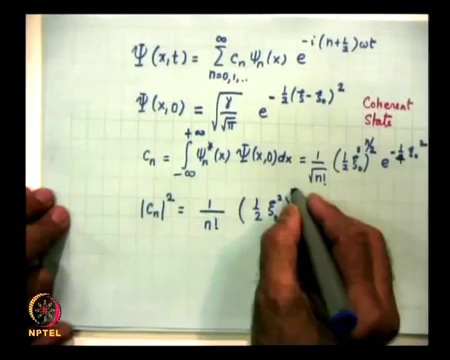 Ψ(x,t) = ∑_{n=0,1,..}^{∞} c_n ψ_n(x) e^{-i(n+1/2)ωt}
Ψ(x,0) = √(γ/√π) e^{-1/2(ξ-ξ_0)^2}
Coherent
State
c_n = ∫_{-∞}^{+∞} ψ_n^*(x) Ψ(x,0)dx = 1/√n! (1/2 ξ_0^2)^{n/2} e^{-1/4 ξ_0^2}
|c_n|^2 = 1/n! (1/2 ξ_0^2)
NPTEL